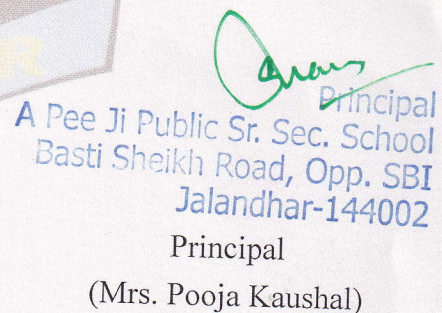 R
Principal
A Pee Ji Public Sr. Sec. School
Basti Sheikh Road, Opp. SBI
Jalandhar-144002
Principal
(Mrs. Pooja Kaushal)